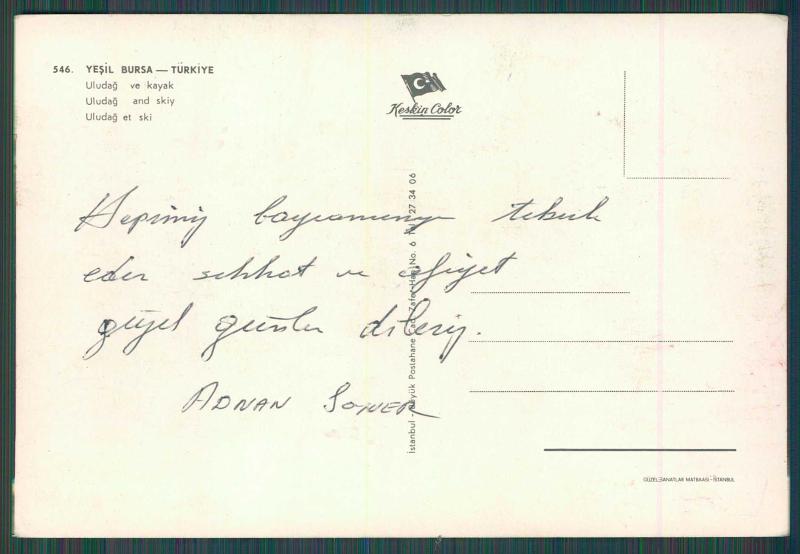 546. YEŞİL BURSA — TÜRKİYE
Uludağ ve kayak
Uludağ and skiy
Uludağ et ski
Keskin Color
Hepimiz bayramınızı tebrik
eder sıhhat ve afiyet
güzel günler dileriz.
ADNAN SONER
İstanbul - Büyük Postahane Cad. Zafer Han No. 6 Tel. 27 34 06
GÜZEL SANATLAR MATBAASI - İSTANBUL